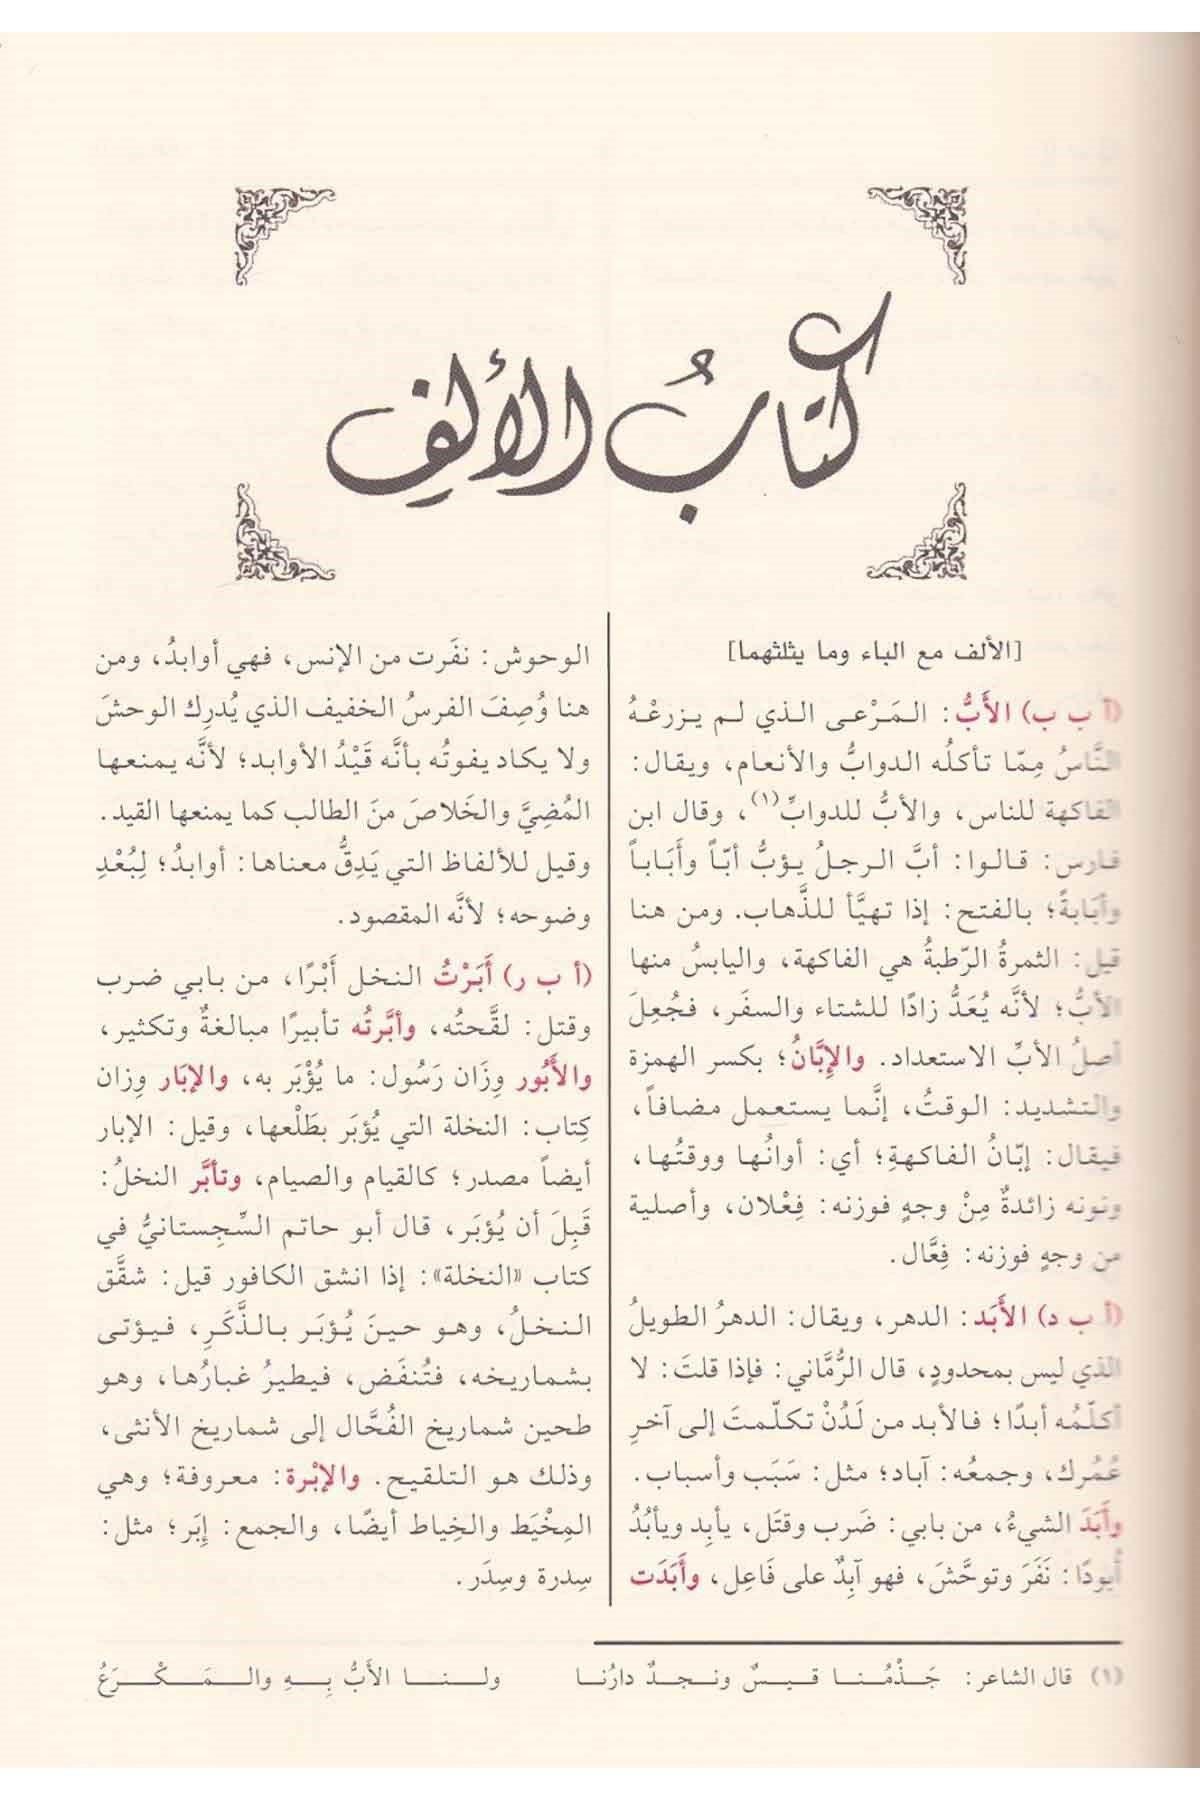 كتابُ الألفِ
[الألف مع الباء وما يثلثهما]
(أ ب ب) الأَبُّ: المَرْعى الذي لم يزرعْهُ
النَّاسُ مِمّا تأكلُه الدوابُّ والأنعام، ويقال:
الفاكهة للناس، والأبُّ للدوابِّ(١)، وقال ابن
فارس: قالوا: أبَّ الرجلُ يؤبُّ أبّاً وأَبَاباً
وأبَابةً؛ بالفتح: إذا تهيَّأ للذَّهاب. ومن هنا
قيل: الثمرةُ الرّطبةُ هي الفاكهة، واليابسُ منها
الأبُّ؛ لأنَّه يُعَدُّ زادًا للشتاء والسفَر، فجُعِلَ
أصلُ الأبِّ الاستعداد. والإِبَّانُ؛ بكسر الهمزة
والتشديد: الوقتُ، إنَّما يستعمل مضافاً،
فيقال: إبّانُ الفاكهةِ؛ أي: أوانُها ووقتُها،
ونونه زائدةٌ مِنْ وجهٍ فوزنه: فِعْلان، وأصلية
من وجهٍ فوزنه: فِعَّال.
(أ ب د) الأَبَد: الدهر، ويقال: الدهرُ الطويلُ
الذي ليس بمحدودٍ، قال الرُّمَّاني: فإذا قلتَ: لا
أكلّمُه أبدًا؛ فالأبد من لَدُنْ تكلّمتَ إلى آخرِ
عُمُرك، وجمعُه: آباد؛ مثل: سَبَب وأسباب.
وأَبَدَ الشيءُ، من بابي: ضَرب وقتَل، يأبِد ويأبُدُ
أُبودًا: نَفَرَ وتوحَّشَ، فهو آبِدٌ على فَاعِل، وأَبَدَت
الوحوش: نفَرت من الإنس، فهي أوابدُ، ومن
هنا وُصِفَ الفرسُ الخفيف الذي يُدرِك الوحشَ
ولا يكاد يفوتُه بأنَّه قَيْدُ الأوابد؛ لأنَّه يمنعها
المُضِيَّ والخَلاصَ منَ الطالب كما يمنعها القيد.
وقيل للألفاظ التي يَدِقُّ معناها: أوابدُ؛ لِبُعْدِ
وضوحه؛ لأنَّه المقصود.
(أ ب ر) أَبَرْتُ النخل أَبْرًا، من بابي ضرب
وقتل: لقَّحتُه، وأبَّرتُه تأبيرًا مبالغةٌ وتكثير،
والأَبُور وِزَان رَسُول: ما يُؤْبَر به، والإبَار وِزان
كِتاب: النخلة التي يُؤبَر بطَلْعها، وقيل: الإبار
أيضاً مصدر؛ كالقيام والصيام، وتأبَّر النخلُ:
قَبِلَ أن يُؤبَر، قال أبو حاتم السِّجِستانيُّ في
كتاب «النخلة»: إذا انشق الكافور قيل: شقَّق
النخلُ، وهو حينَ يُؤبَر بالذَّكَرِ، فيؤتى
بشماريخه، فتُنفَض، فيطيرُ غبارُها، وهو
طحين شماريخ الفُحَّال إلى شماريخ الأنثى،
وذلك هو التلقيح. والإبْرة: معروفة؛ وهي
المِخْيَط والخِياط أيضًا، والجمع: إبَر؛ مثل:
سِدرة وسِدَر.
(١) قال الشاعر: جَذْمُنا قيسٌ ونجدٌ دارُنا ولنا الأَبُّ بِهِ والمَكْرَعُ